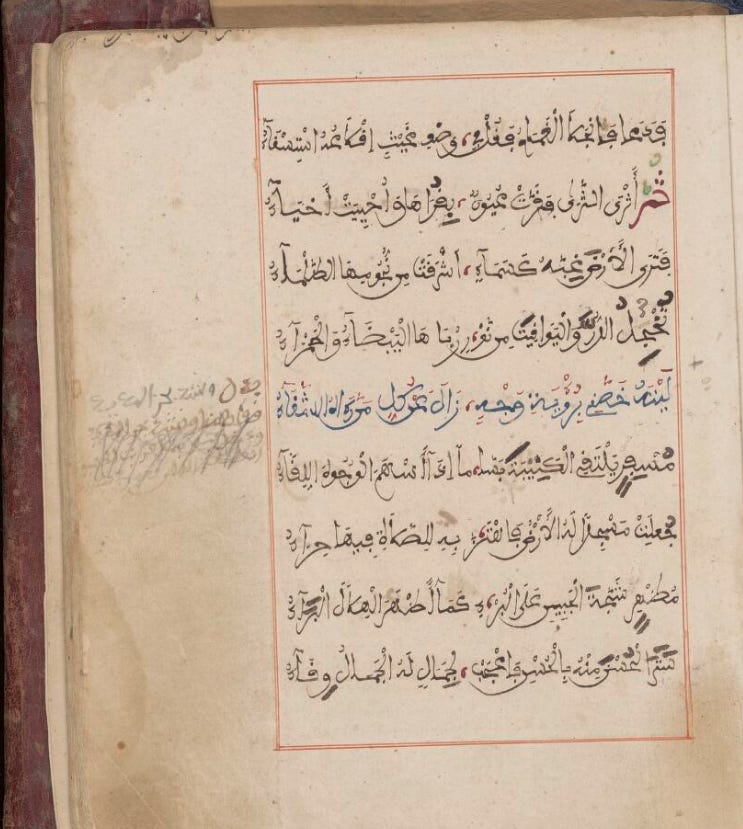 فدعا فانجلى الغمام فقل في وصف غيث إقلاعه استسقاء
ثم أثرى الثرى فقرت عيون بقراها وأحييت أحياء
فترى الأرض غبه كسماء أشرقت من نجومها الظلماء
تخجل الدر واليواقيت من نور رباها البيضاء والحمراء
ليته خصني برؤية وجه زال عن كل من رءاه الشقاء
مسفر يلتقي الكتيبة بساما إذا أسهم الوجوه اللقاء
جعلت مسجدا له الأرض فاهتز به للصلاة فيها حراء
مظهر شجة الجبين على البرء كما أظهر الهلال البراء
ستر الحسن منه بالحسن فاعجب لجمال له الجمال وقاء